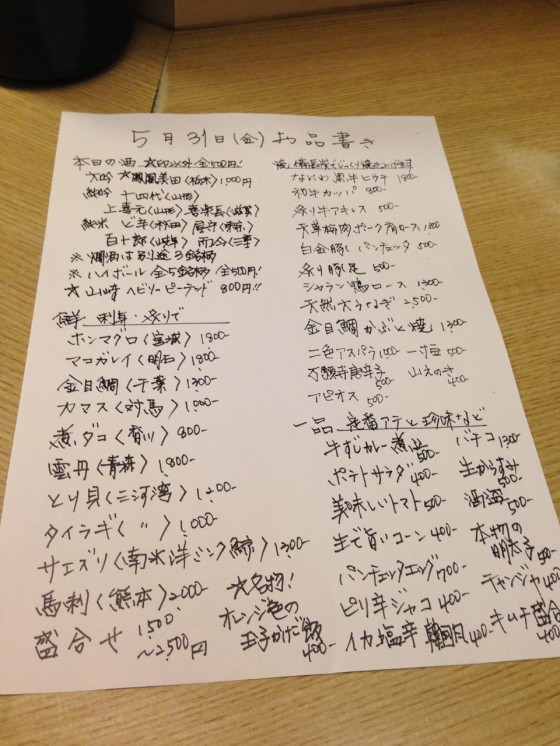 5月31日(金) お品書き
本日の酒 ☆印以外全500円!
大吟 ☆鳳凰美田(栃木) 1,000円
純吟 十四代(山形)
上喜元(山形) 喜楽長(滋賀)
純米 ど辛(秋田)
百十郎(岐阜) 而今(三重)
※燗酒は別途3銘柄
※ハイボール 全5銘柄 全500円!
☆山崎ヘビリーピーテッド 800円!!
鮮 刺身・炙りで
ホンマグロ(宮城) 1,800-
マコガレイ(明石) 1,800-
金目鯛(千葉) 1,300-
カマス(対馬) 1,000-
煮ダコ(香川) 800-
雲丹(青森) 1,800-
とり貝(三河湾) 1,200-
タイラギ(〃) 1,000-
サエズリ(南氷洋ミンク鯨) 1300-
馬刺(熊本) 2,000-
盛合せ 1,500~2,500円
☆名物!
オレンジ色の
玉子かけご飯
400-
焼 備長炭でじっくり焼き上げます
なにわ黒牛ヒウチ 1,800-
和牛カッパ 800-
炙り牛アキレス 500-
天草梅肉ポーク肩ロース
白金豚パンチェッタ 500-
炙り豚足 500-
シャラン鴨ロース 1,300-
天然大うなぎ 2,500-
金目鯛かぶと焼 1300-
二色アスパラ 一寸豆 500-
万願寺唐辛子 500- 山えのき 400-
アピオス 500-
一品 定番アテと珍味など
牛すじカレー煮込 500- バチコ 1300-
ポテトサラダ 400- 生からすみ 500-
美味しいトマト 500- 酒盗 500-
生で旨いコーン 400- 本物の明太子 500-
パンチェッタエッグ 700- チャンジャ 400-
ピリ辛ジャコ 400- キムチ盛合 400-
イカ塩辛 400-